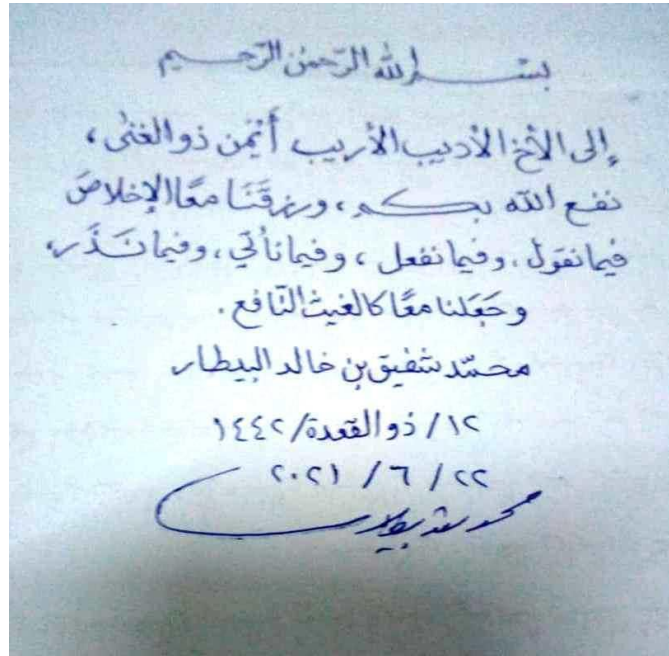 بسم الله الرّحمٰن الرّحيم
إلى الأخ الأديب الأريب أيمن ذو الغنى،
نفع الله بكم، ورزقَنَا معًا الإخلاصَ
فيما نقول، وفيما نفعل، وفيما نأتي، وفيما نَذَر،
وجَعَلنا معًا كالغيث النّافع.
محمّد شفيق بن خالد البيطار
١٢/ ذو القعدة/ ١٤٤٢
٢٢/ ٦/ ٢٠٢١